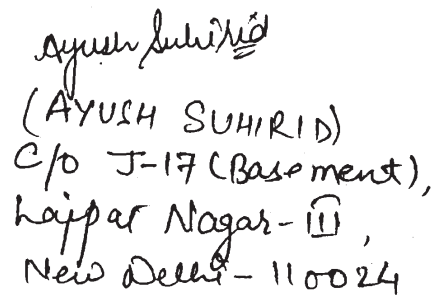 Ayush Suhirid
(AYUSH SUHIRID)
C/o J-17 (Basement),
Lajpat Nagar-III,
New Delhi-110024